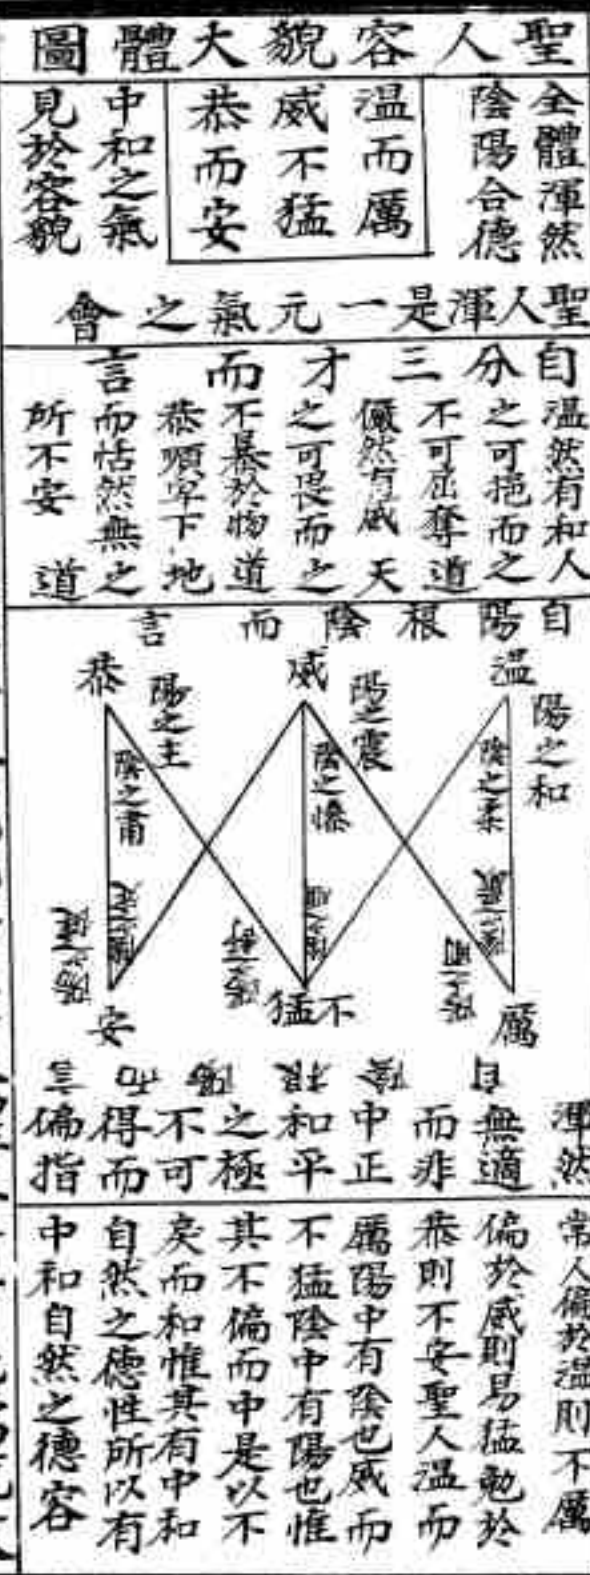 聖人容貌大體圖
全體渾然
陰陽合德
温而厲
威不猛
恭而安
中和之氣
見於容貌
聖人渾是一元氣之會
自分三才而言
温然有和
之可挹而
不可屈奪
儼然有威
之可畏而
不暴於物
恭順卑下
而恬然無
所不安
人之道
天之道
地之道
自陽根陰而言
温
威
恭
陽之和
陰之柔
陽之震
陰之慘
陽之主
陰之肅
厲
不猛
安
自陰根陽而言
渾然
無適
而非
中正
和平
之極
不可
得而
偏指
常人偏於温則不厲
偏於威則易猛勉於
恭則不安聖人温而
厲陽中有陰也威而
不猛陰中有陽也惟
其不偏而中是以不
戾而和惟其有中和
自然之德性所以有
中和自然之德容